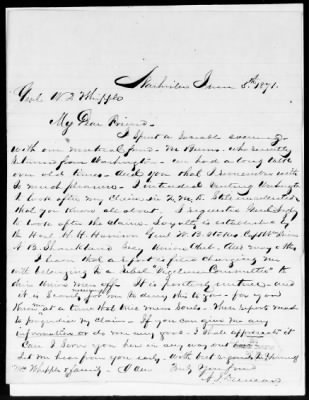 Nashville June 8th 1871.
Genl W D Whipple
My Dear Friend.
I spent a sociable evening
with our mutual friend Mr Burns, who recently
returned from Washington. We had a long talk
over old times. And you that I remember with
so much pleasure. I intended visiting Washington
to look after my claim for R. &c. &c. still unadjusted
that you know all about. I requested
to look after the claim. Loyalty is established by
the Hon. H. H. Harrison Genl W B Stokes Capt
A. B. Shankland Secy Union Club, & others
I hear that a report is filed charging me
with belonging to a Rebel "Vigilance Committee" to
drive Union men off. It is untrue, and
it is scarcely for me to deny this to you - for you
know at a time that tried mens Souls. These reports need
to prejudice my claim. If you can give me any
information or do me any good. I shall appreciate it
Can I serve you here in any way
Let me hear from you early. With best regards to yourself
Mrs Whipple & family. I am Truly Your friend